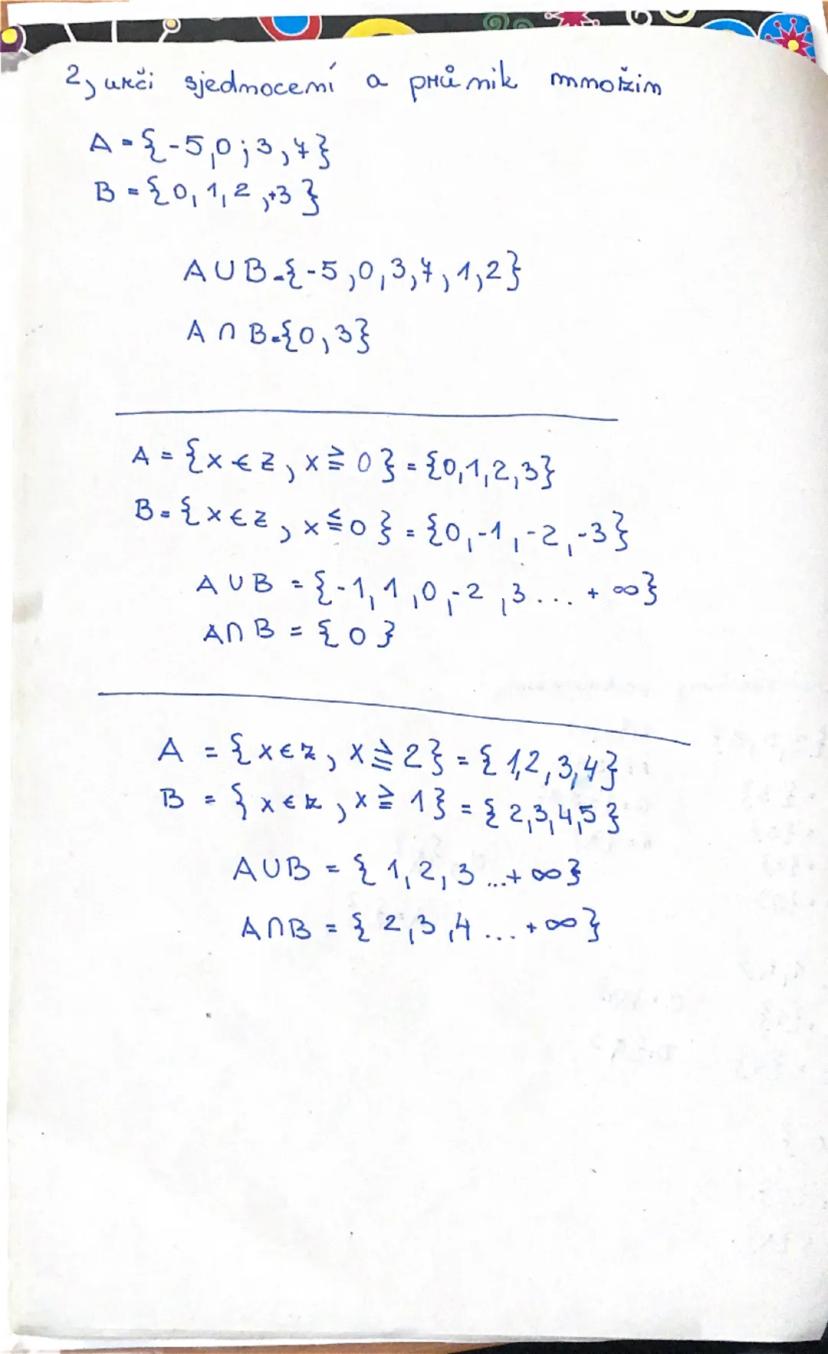 2, urči sjednocení a průnik množin
A = {-5, 0; 3, 7}
B = {0, 1, 2, +3}
A ∪ B = {-5, 0, 3, 7, 1, 2}
A ∩ B = {0, 3}
A = {x ∈ z, x ≧ 0} = {0, 1, 2, 3}
B = {x ∈ z, x ≦ 0} = {0, -1, -2, -3}
A ∪ B = {-1, 1, 0, -2, 3 ... + ∞}
A ∩ B = {0}
A = {x ∈ z, x ≧ 2} = {1,2, 3, 4}
B = {x ∈ z, x ≧ 1} = {2, 3, 4, 5}
A ∪ B = {1, 2, 3 ... + ∞}
A ∩ B = {2, 3, 4 ... + ∞}